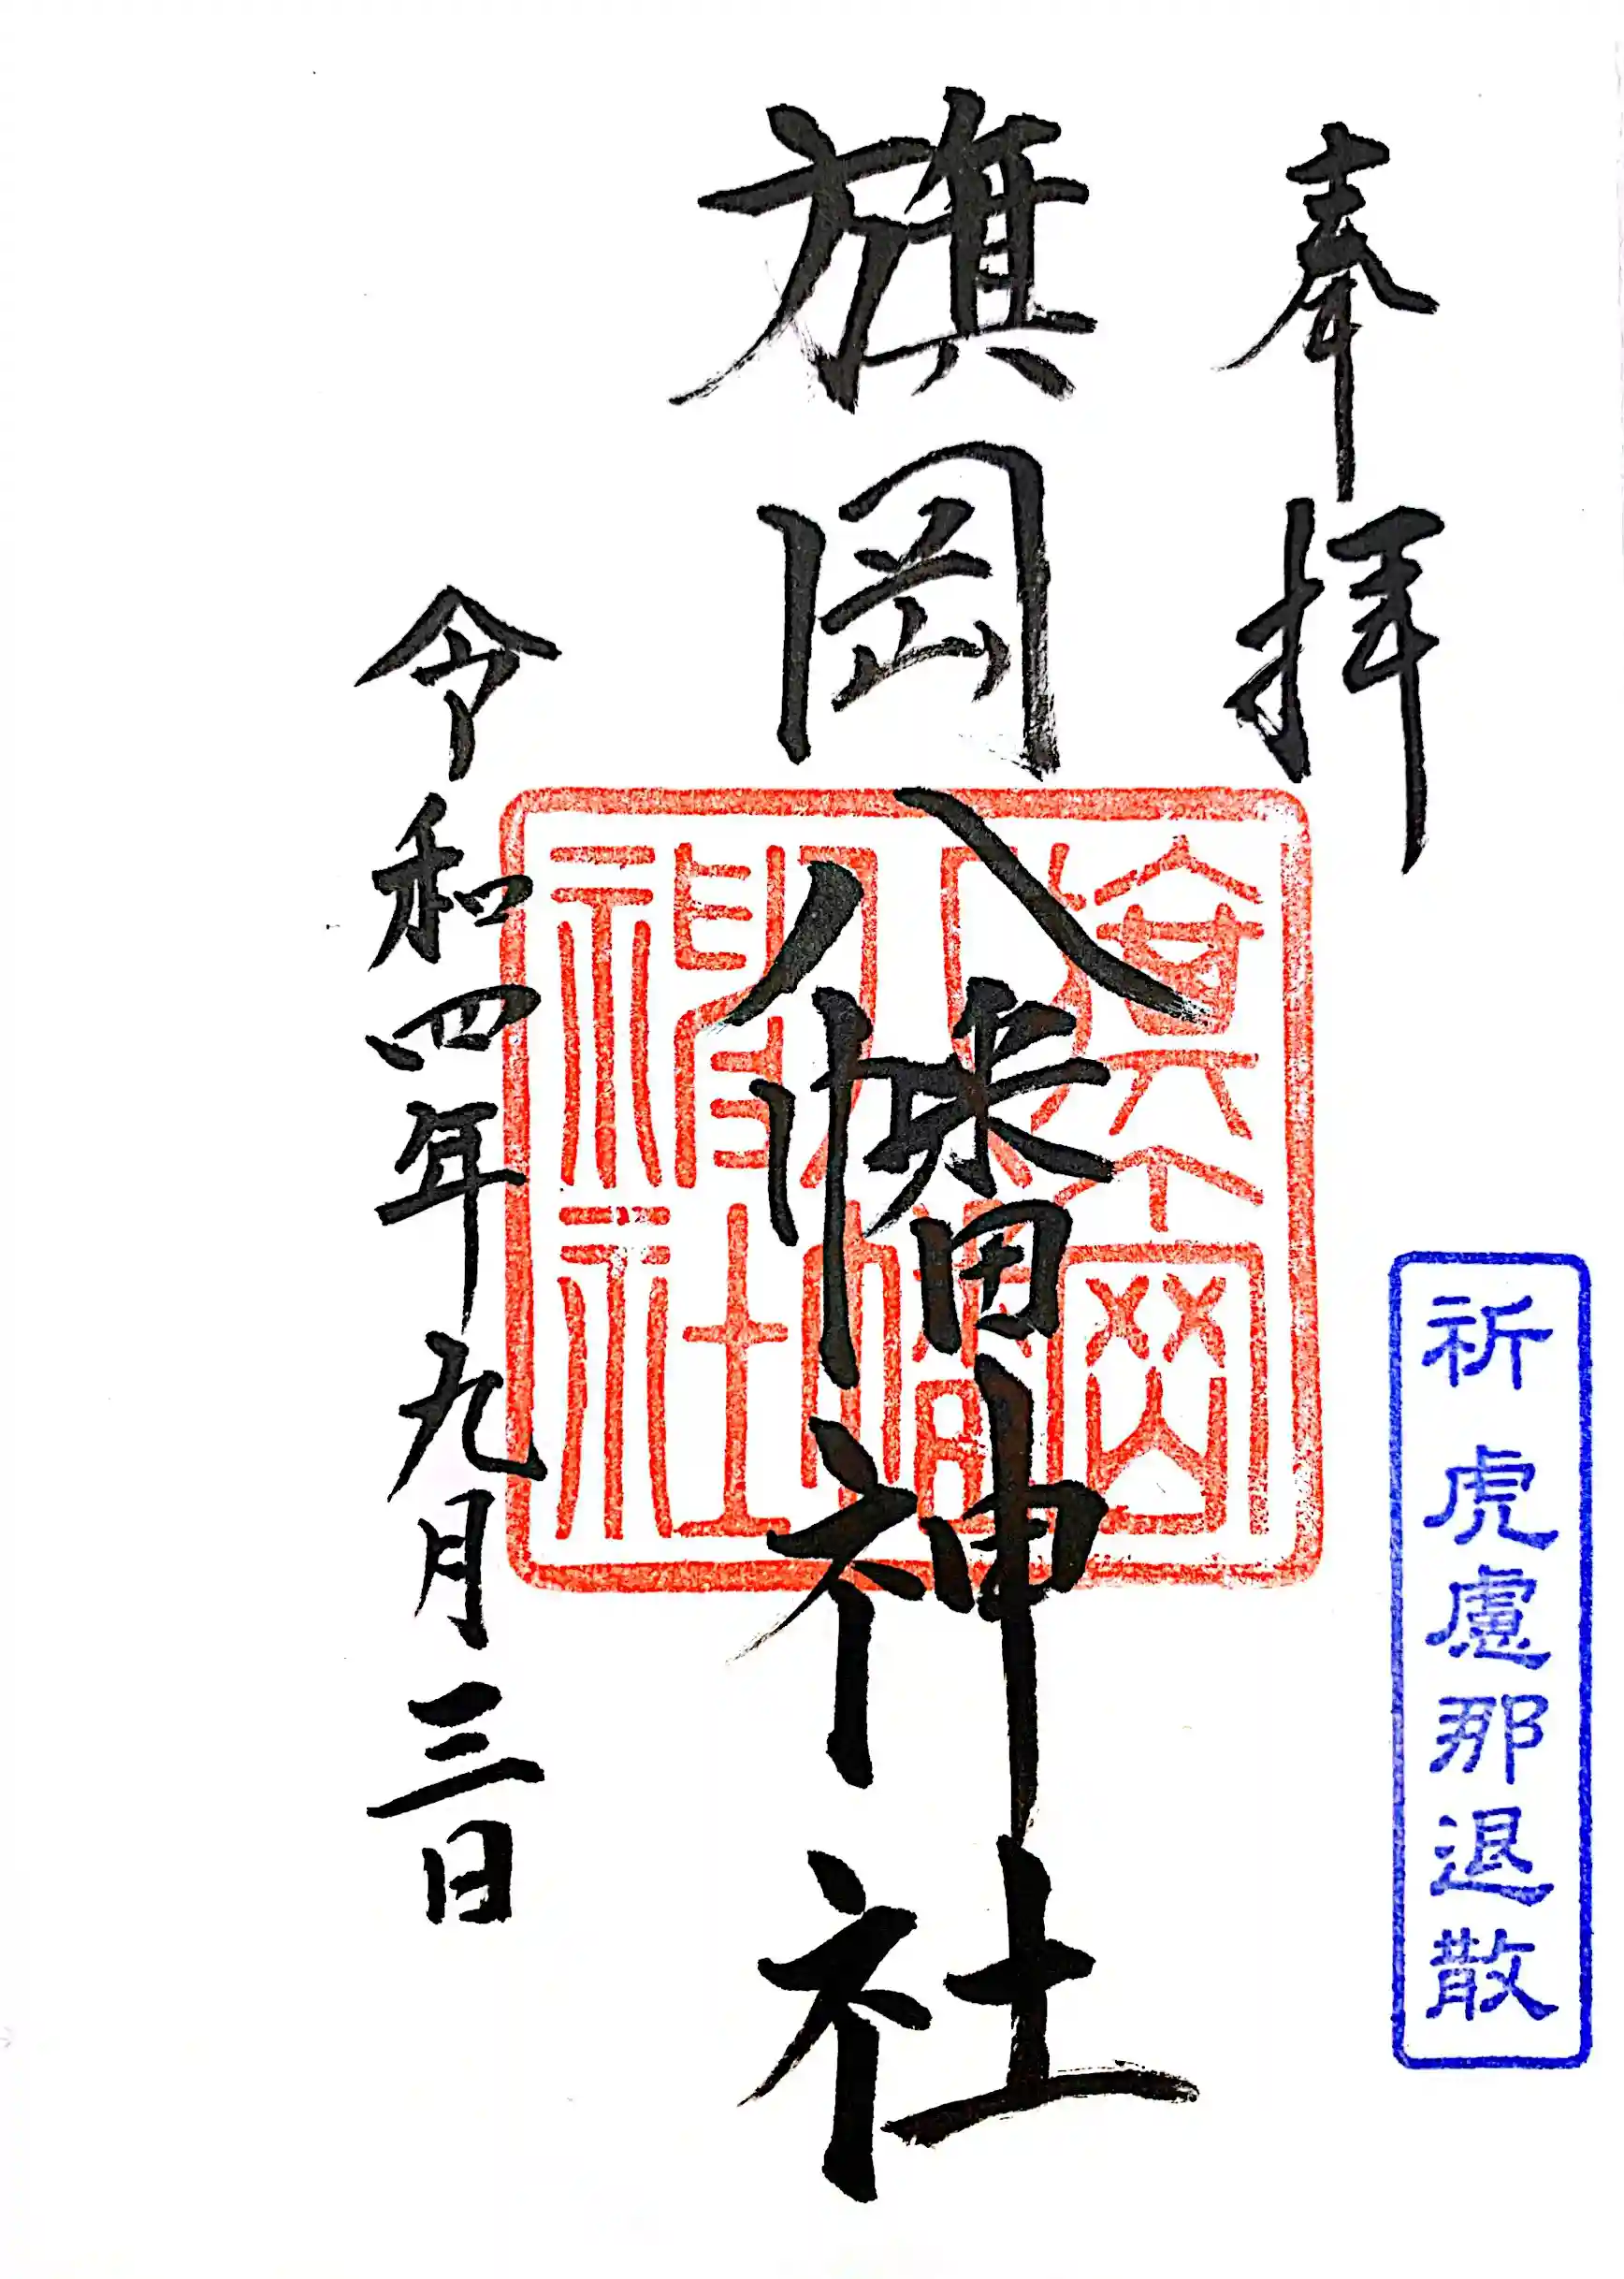 奉拝
祈虎慮那退散
旗岡八幡神社
旗岡八幡神社
令和四年九月三日